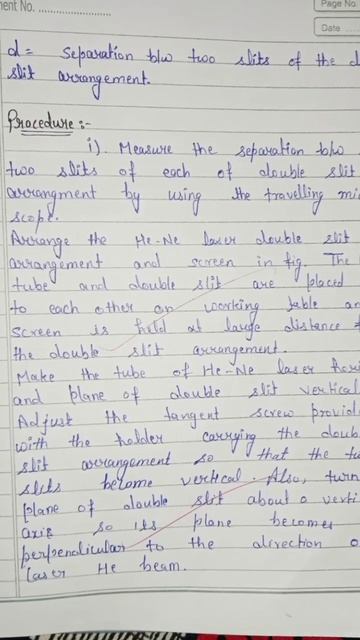 ment No.
Page No.
Date
d = Separation b/w two slits of the d
slit arrangement.
Procedure :-
i). Measure the separation b/w
two slits of each of double slit
arrangment by using the travelling mi
scope.
Arrange the He-Ne laser double slit
arrangement and screen in fig. The
tube and double slit are placed
to each other on working table an
screen is held at large distance f
the double slit arrangement.
Make the tube of He-Ne laser hori
and plane of double slit vertical
Adjust the tangent screw provid
with the holder carrying the doub
slit arrangement so that the tw
slits become vertical. Also, turn
plane of double slit about a verti
axis so its plane becomes
perpendicular to the direction o
laser He beam.